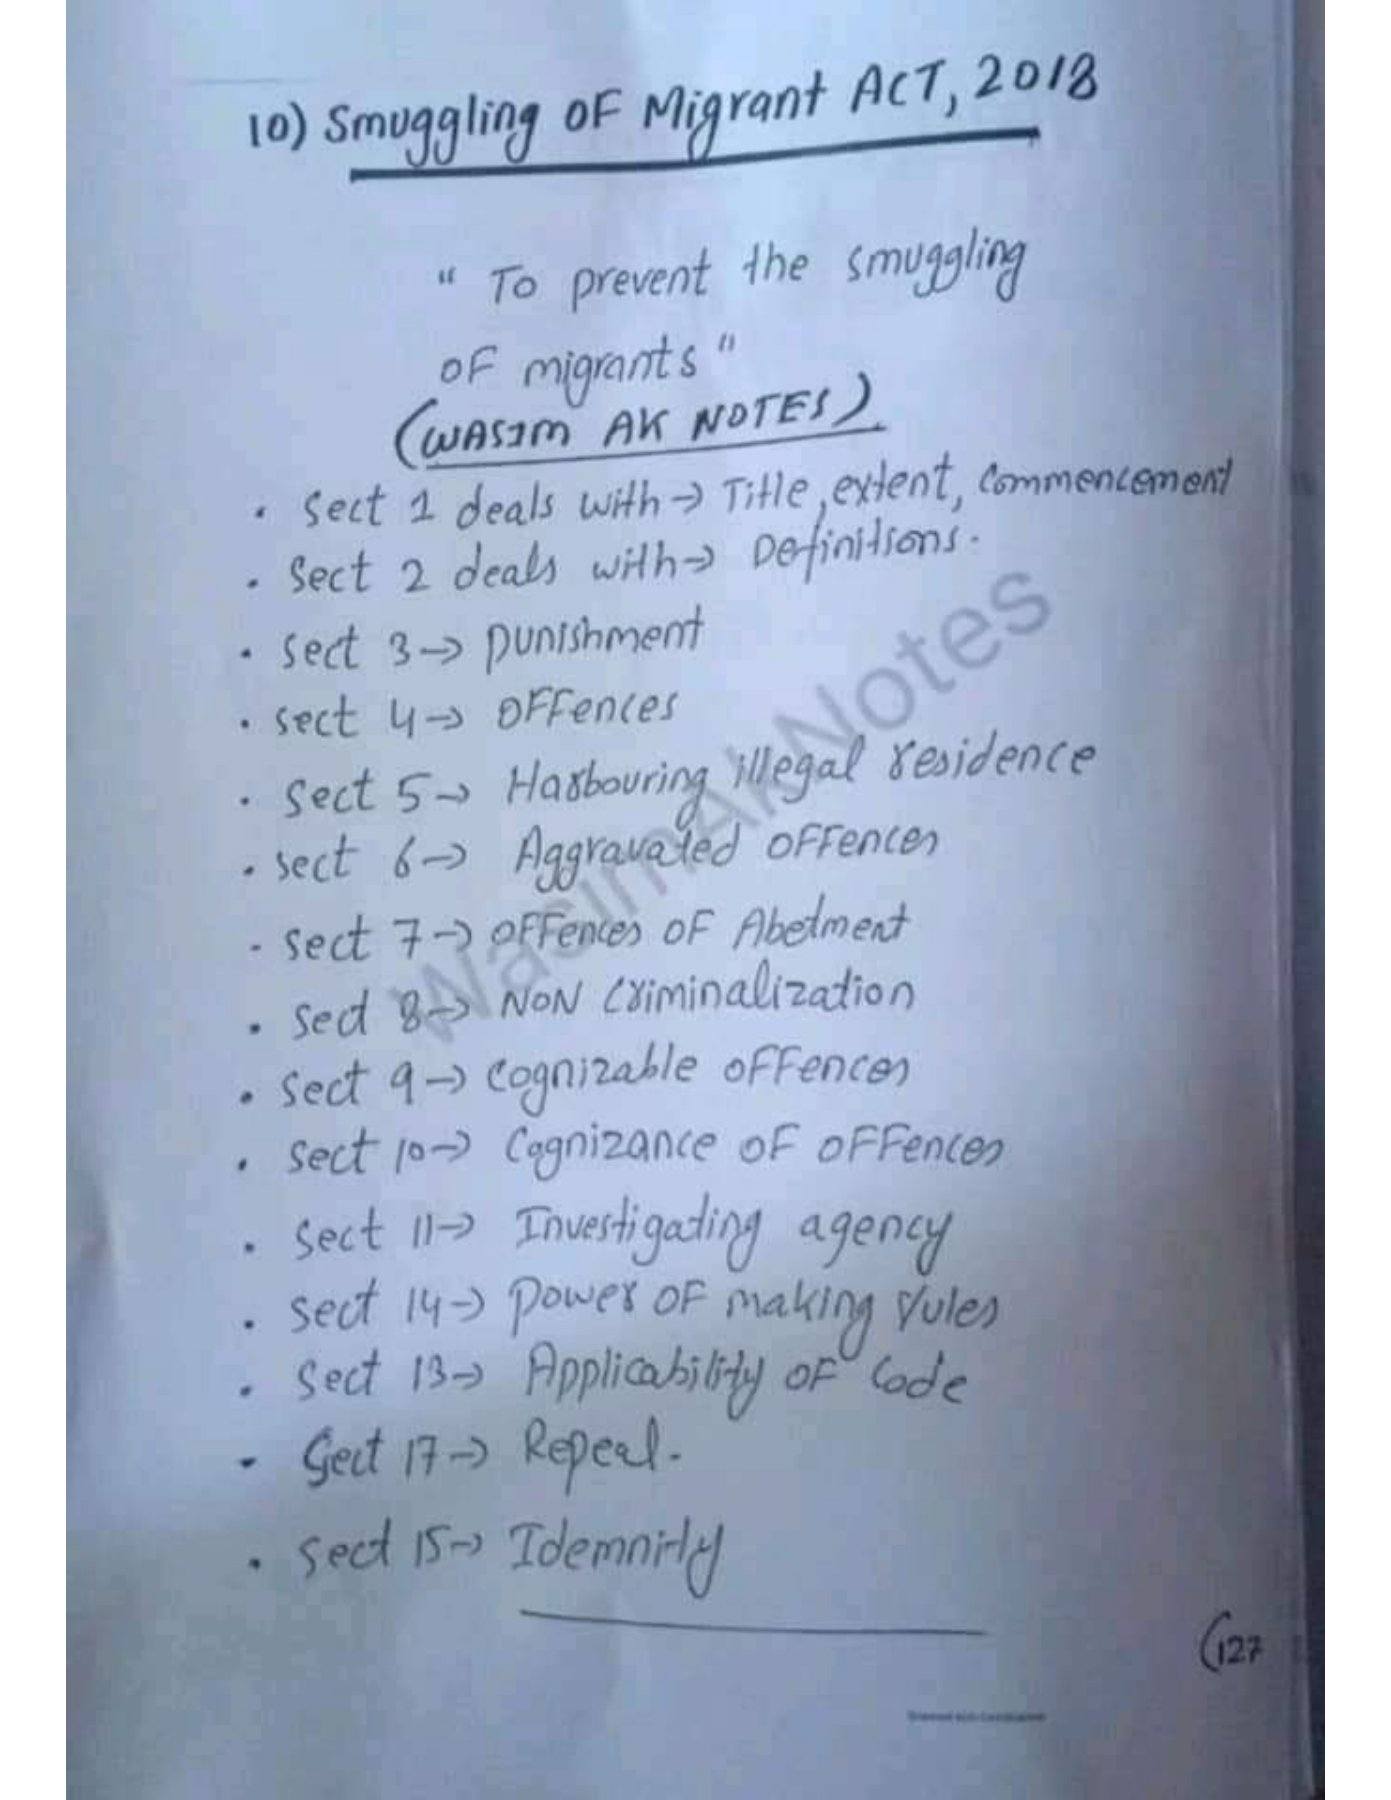 10) Smuggling OF Migrant ACT, 2018
" To prevent the smuggling
OF migrants "
(WASIM AK NOTES)
• Sect 1 deals with → Title, extent, Commencement
• Sect 2 deals with → Definitions.
• Sect 3 → Punishment
• Sect 4 → OFFences
• Sect 5 → Harbouring illegal residence
• Sect 6 → Aggravated OFFences
- Sect 7 → OFFences OF Abetment
• Sect 8 → NON Criminalization
• Sect 9 → Cognizable OFFences
• Sect 10 → Cognizance OF OFFences
• Sect 11 → Investigating agency
• Sect 14 → Power OF making rules
• Sect 13 → Applicability OF Code
- Sect 17 → Repeal.
• Sect 15 → Idemnity
(127
WasimAkNotes